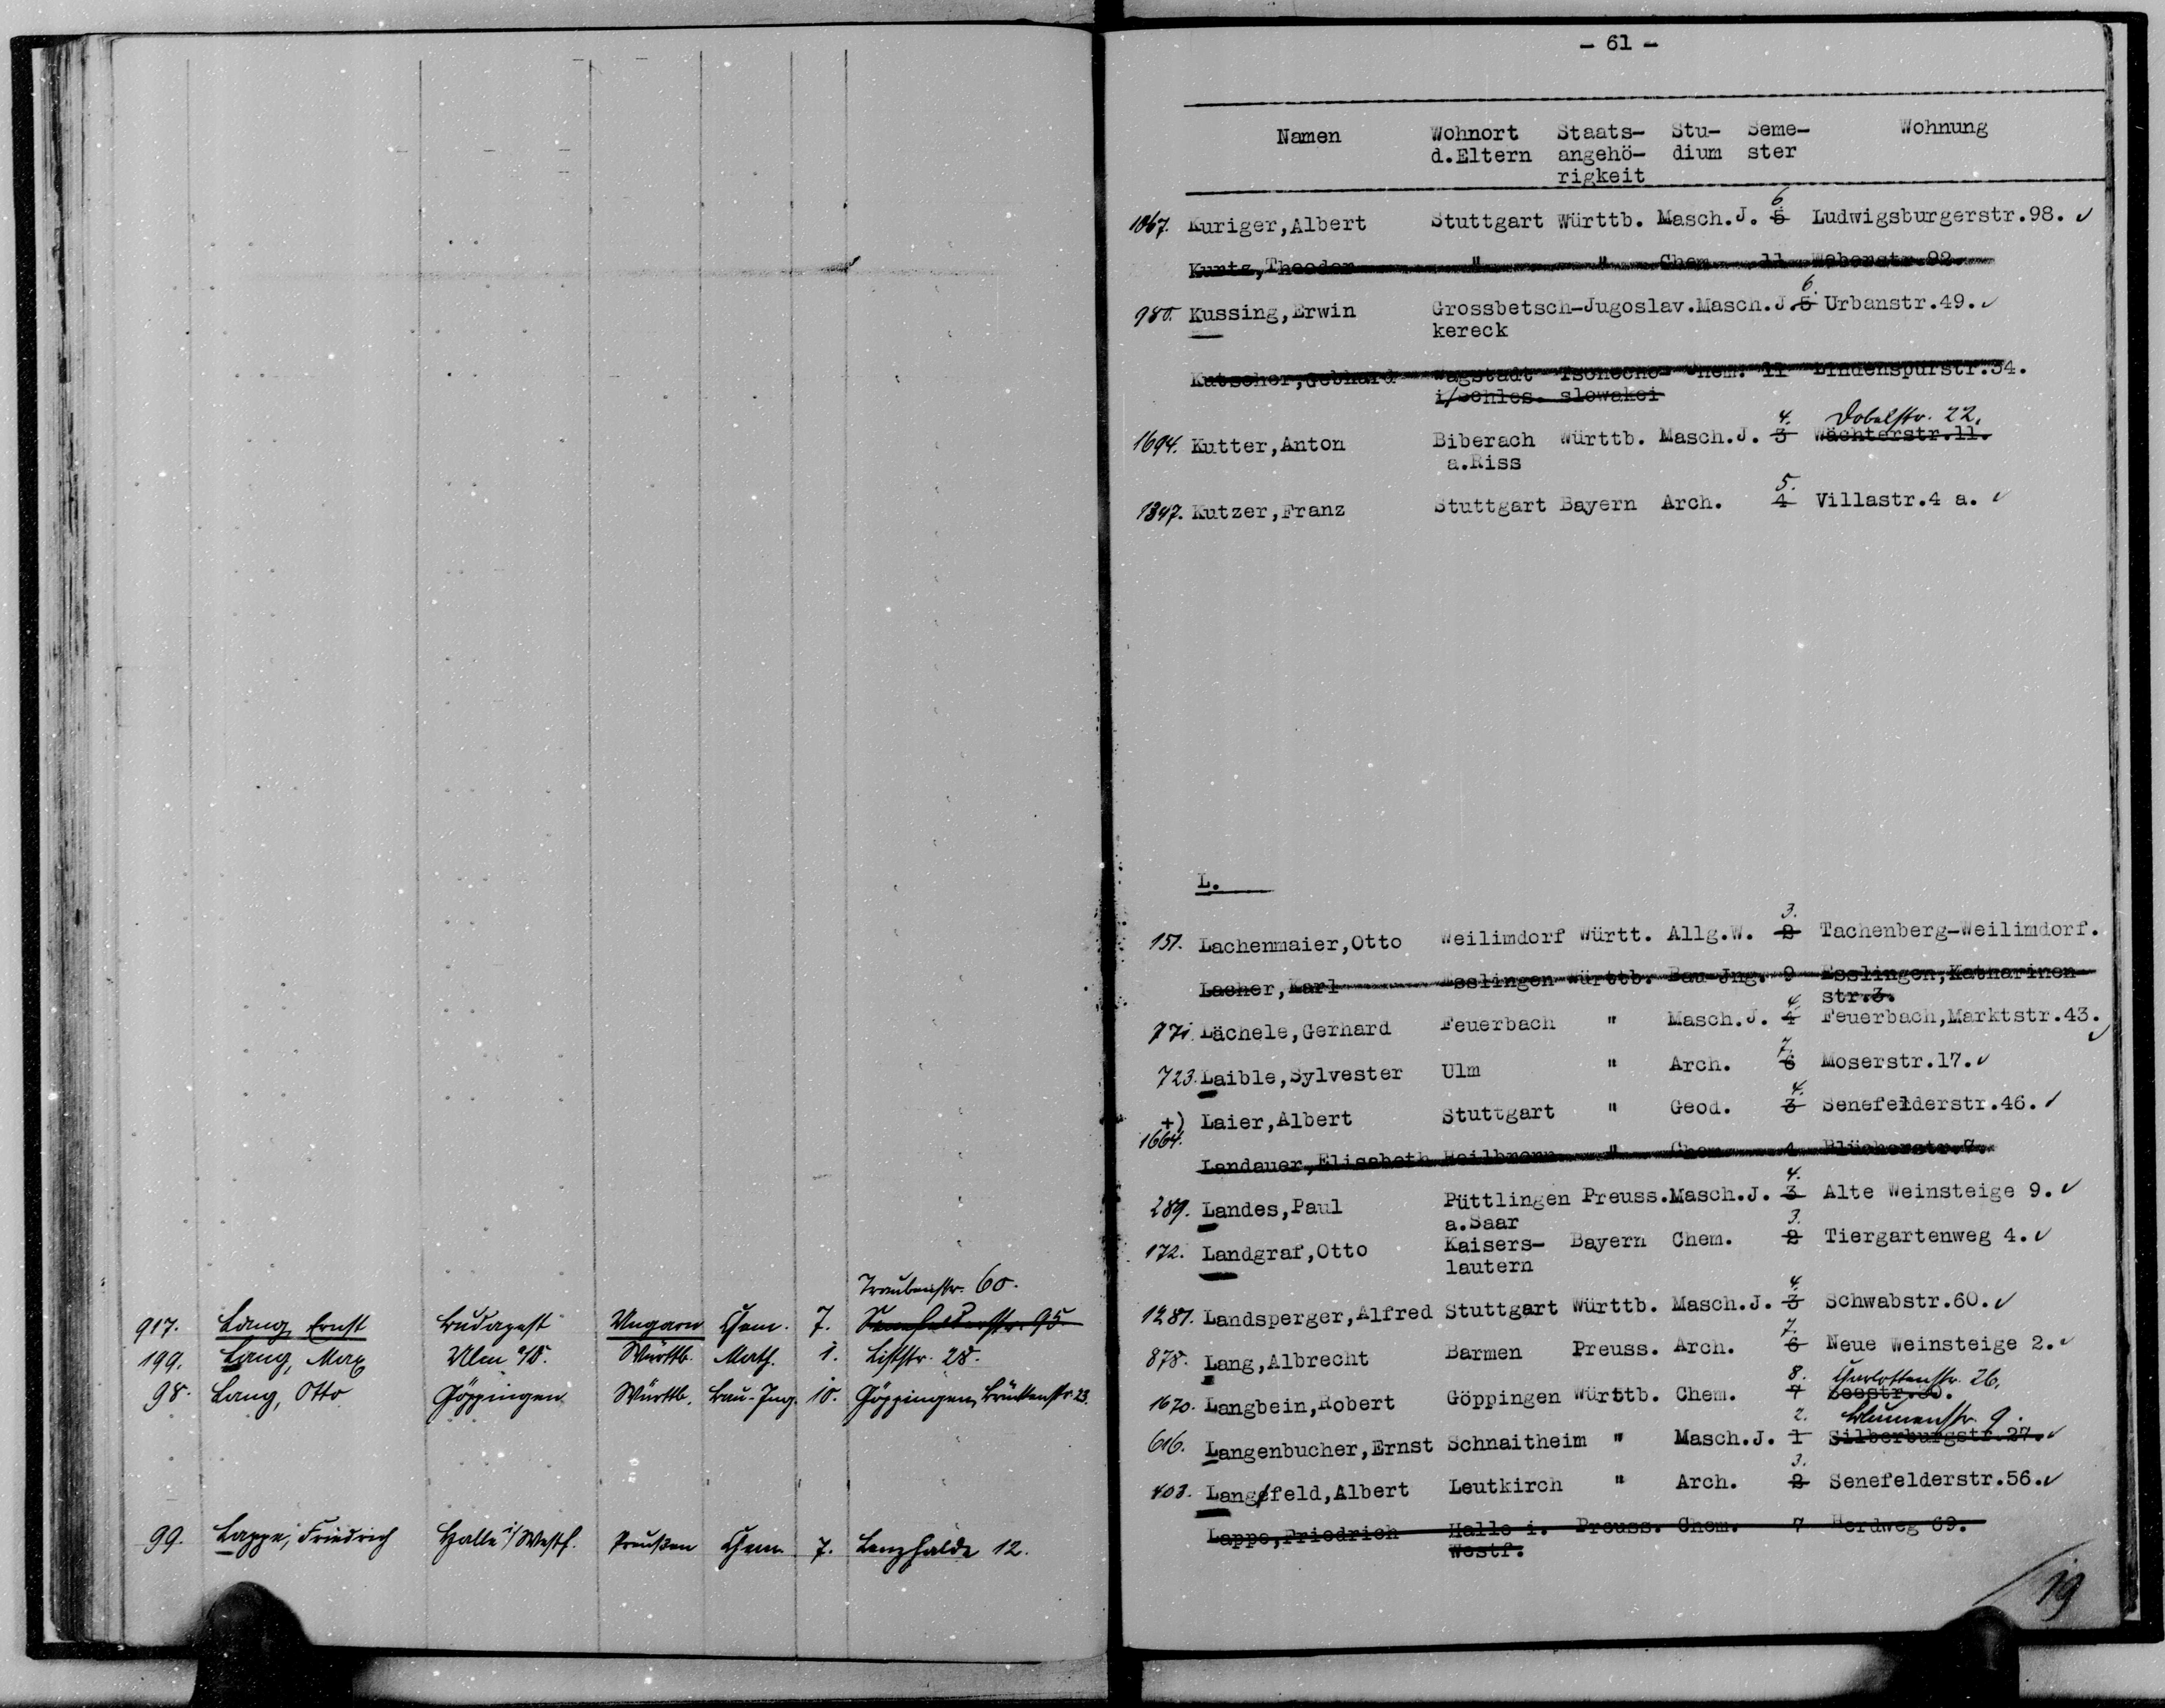 Traubenstr. 60.
917. Lang, Ernst Budapest Ungarn Chem. 7. Senefelderstr. 95
199. Lang, Max Ulm a/D. Württb. Math. 1. Liststr. 28.
98. Lang, Otto Göppingen Württb. Bau-Ing. 10. Göppingen, Brückenstr. 23.
99. Lappe, Friedrich Halle i/Westf. Preußen Chem. 7. Lenzhalde 12.
- 61 -
Namen Wohnort Staats- Stu- Seme- Wohnung
d.Eltern angehö- dium ster
rigkeit
6.
1067. Kuriger,Albert Stuttgart Württb. Masch.J. 5 Ludwigsburgerstr.98. ✓
Kurtz,Theodor " " Chem. 11 Weberstr.92.
6.
980. Kussing,Erwin Grossbetsch-Jugoslav.Masch.J.5 Urbanstr.49. ✓
kereck
Kutscher,Gebhard Wagstadt Tschecho- Chem. 11 Lindenspürstr.34.
i/Schles. slowakei
4. Dobelstr. 22.
1694. Kutter,Anton Biberach Württb. Masch.J. 3 Wächterstr.11.
a.Riss
5.
1347. Kutzer,Franz Stuttgart Bayern Arch. 4 Villastr.4 a. ✓
L.
3.
151. Lachenmaier,Otto Weilimdorf Württ. Allg.W. 2 Tachenberg-Weilimdorf.
Lacher,Karl Esslingen Württb. Bau-Jng. 9 Esslingen,Katharinen-
str.3.
4.
771. Lächele,Gerhard Feuerbach " Masch.J. 4 Feuerbach,Marktstr.43. ✓
7.
723. Laible,Sylvester Ulm " Arch. 6 Moserstr.17. ✓
4.
+) Laier,Albert Stuttgart " Geod. 3 Senefelderstr.46. ✓
1664.
Landauer,Elisabeth Heilbronn " Chem. 4 Blücherstr.7.
4.
289. Landes,Paul Püttlingen Preuss.Masch.J. 3 Alte Weinsteige 9. ✓
a.Saar
3.
172. Landgraf,Otto Kaisers- Bayern Chem. 2 Tiergartenweg 4. ✓
lautern
4.
1281. Landsperger,Alfred Stuttgart Württb. Masch.J. 3 Schwabstr.60. ✓
7.
878. Lang,Albrecht Barmen Preuss. Arch. 6 Neue Weinsteige 2. ✓
8. Charlottenstr. 26.
1670. Langbein,Robert Göppingen Württb. Chem. 7 Seestr.30.
2. Blumenstr. 9.
616. Langenbucher,Ernst Schnaitheim " Masch.J. 1 Silberburgstr.27. ✓
3.
403. Langfeld,Albert Leutkirch " Arch. 2 Senefelderstr.56. ✓
Lappe,Friedrich Halle i. Preuss. Chem. 7 Herdweg 69.
Westf.
19